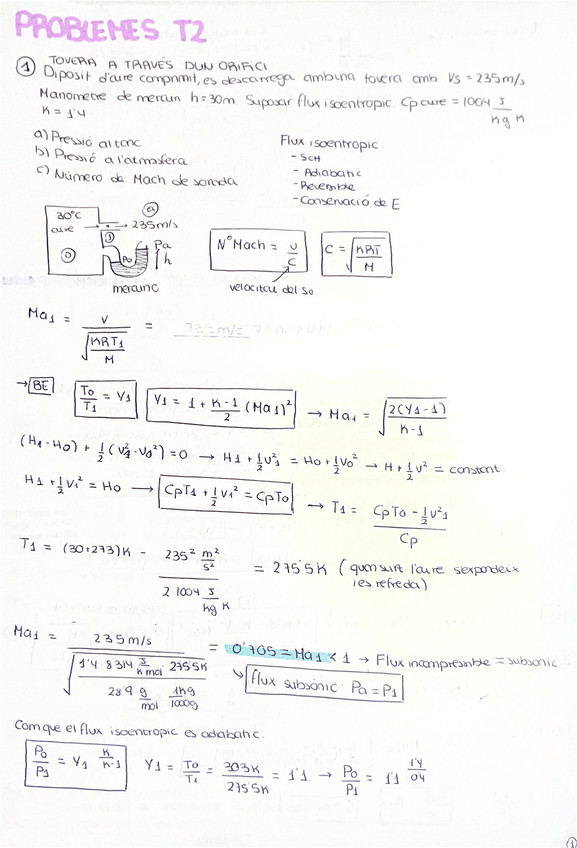 PROBLEMES T2
1 TOVERA A TRAVÉS D'UN ORIFICI
Diposit d'aire comprimit, es descarrega amb una tovera amb Vs = 235 m/s
Manometre de mercuri h = 30m Suposar flux isoentropic. Cp aire = 1004 J/Kg K
K = 1'4
a) Pressió al tanc
b) Pressió a l'atmosfera
c) Número de Mach de sortida
Flux isoentropic
- Sch
- Adiabatic
- Reversible
- Conservació de E
30°C
aire
a
→ 235 m/s
1
0
Po
Pa
h
mercuri
NºMach = v/c
C = √(KRT/M)
velocitat del so
Ma1 = v/√(KRT1/M) =
→ BE T0/T1 = Y1 Y1 = 1 + K-1/2 (Ma1)² → Ma1 = √(2(Y1-1)/K-1)
(H1-H0) + 1/2(v1²-v0²) = 0 → H1 + 1/2v²1 = H0 + 1/2v0² → H + 1/2v² = constant
H1 + 1/2v1² = H0 → CpT1 + 1/2v1² = CpT0 → T1 = CpT0 - 1/2v²1/Cp
T1 = (30+273)K - 235² m²/s²/2 1004 J/kg K = 275'5K (quan surt l'aire s'expandeix
i es refreda)
Ma1 = 235 m/s/√(1'4 8314 J/K mol 275'5K/28'9 g/mol 1Kg/1000g) = 0'705 = Ma1 < 1 → Flux incompressible = subsonic
↳ flux subsònic Pa = P1
Com que el flux isoentropic es adiabatic:
P0/P1 = Y1 K/K-1 Y1 = T0/T1 = 303K/275'5K = 1'1 → P0/P1 = 1'1 1'4/0'4
1